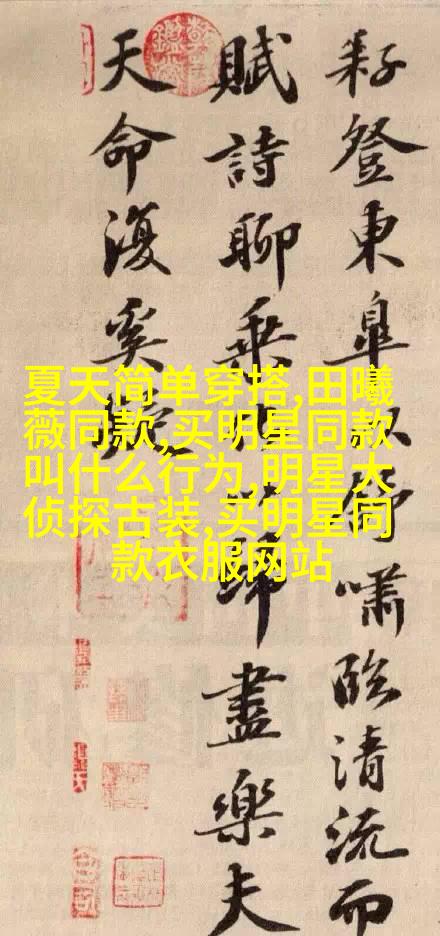 耔登東皋以舒嘯臨清流而
賦詩聊乘化以歸盡樂夫
天命復奚疑
夏天简单穿搭,田曦
薇同款,买明星同款
叫什么行为,明星大
侦探古装,买明星同
款衣服网站